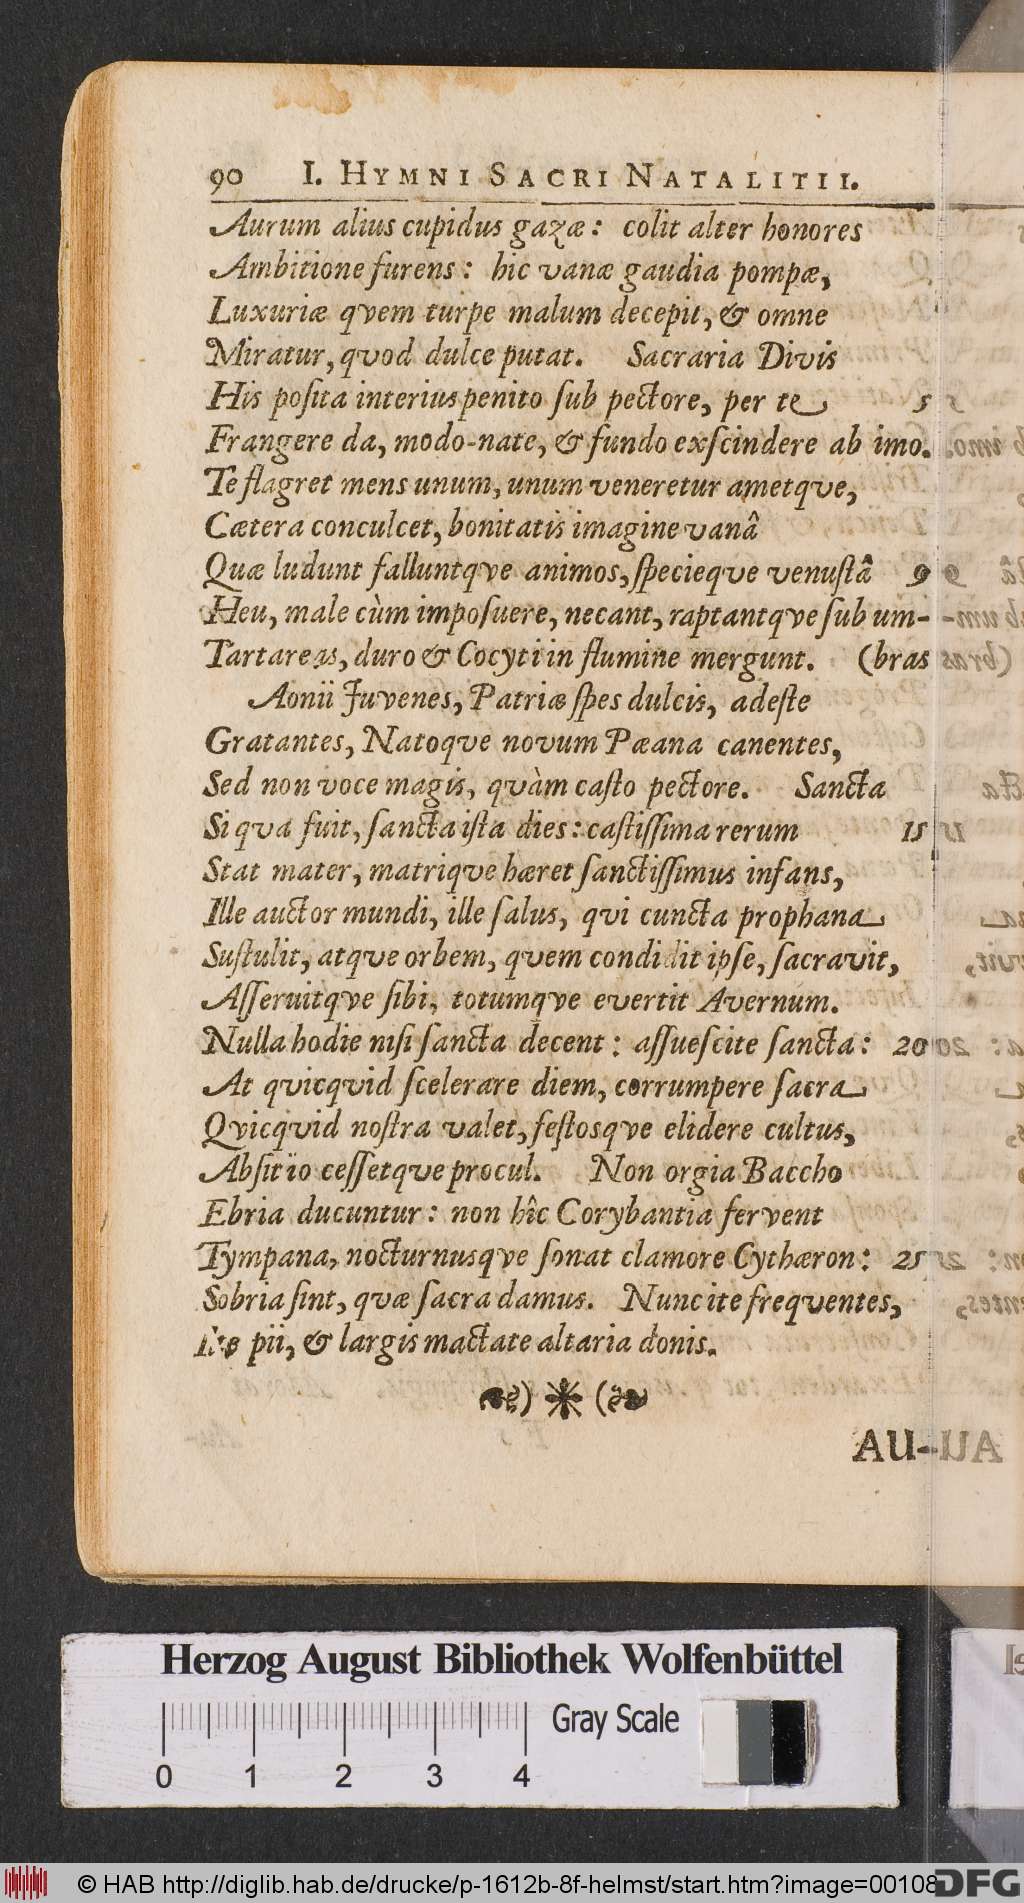 90 I. HYMNI SACRI NATALITII.
Aurum alius cupidus gazæ: colit alter honores
Ambitione furens: hic vanæ gaudia pompæ,
Luxuriæ qvem turpe malum decepit, & omne
Miratur, qvod dulce putat. Sacraria Divis
His poſita interius penito ſub pectore, per te 5
Frangere da, modo-nate, & fundo exſcindere ab imo.
Te flagret mens unum, unum veneretur ametqve,
Cætera conculcet, bonitatis imagine vanâ
Quæ ludunt falluntqve animos, ſpecieqve venuſtâ 9
Heu, male cùm impoſuere, necant, raptantqve ſub um-
Tartareas, duro & Cocyti in flumine mergunt. (bras
Aonii Juvenes, Patriæ ſpes dulcis, adeſte
Gratantes, Natoqve novum Pæana canentes,
Sed non voce magis, quàm caſto pectore. Sancta
Si qva fuit, ſancta iſta dies: caſtiſſima rerum 15
Stat mater, matriqve hæret ſanctiſſimus infans,
Ille auctor mundi, ille ſalus, qvi cuncta prophana
Suſtulit, atqve orbem, qvem condidit ipſe, ſacravit,
Aſſeruitqve ſibi, totumqve evertit Avernum.
Nulla hodie niſi ſancta decent: aſſueſcite ſancta: 20
At qvicqvid ſcelerare diem, corrumpere ſacra
Qvicqvid noſtra valet, feſtosqve elidere cultus,
Abſit ïo ceſſetqve procul. Non orgia Baccho
Ebria ducuntur: non hîc Corybantia fervent
Tympana, nocturnusqve ſonat clamore Cythæron: 25
Sobria ſint, qvæ ſacra damus. Nunc ite freqventes,
Ite pii, & largis mactate altaria donis.
AU-
Herzog August Bibliothek Wolfenbüttel
Gray Scale
0 1 2 3 4
© HAB http://diglib.hab.de/drucke/p-1612b-8f-helmst/start.htm?image=00108
DFG